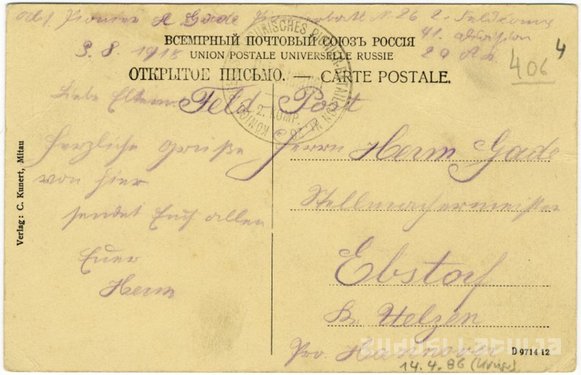 Abs. Pionier A Gade Pionierbatl N 26 2. Feldkomp
3.8.1918
41. Division
406
4
ВСЕМІРНЫЙ ПОЧТОВЫЙ СОЮЗЪ РОССІЯ
UNION POSTALE UNIVERSELLE RUSSIE
ОТКРЫТОЕ ПИСЬМО. — CARTE POSTALE.
2. KOMP.
Feld Post
Liebe Eltern
Herzliche Grüße
von hier
sendet Euch allen
Euer
Herm
Herrn Herm Gade
Stellmachermeister
Ebstorf
Kr Uelzen
Prov. Hannover
Verlag: C. Kunert, Mitau
D 9714 12
14.4.86